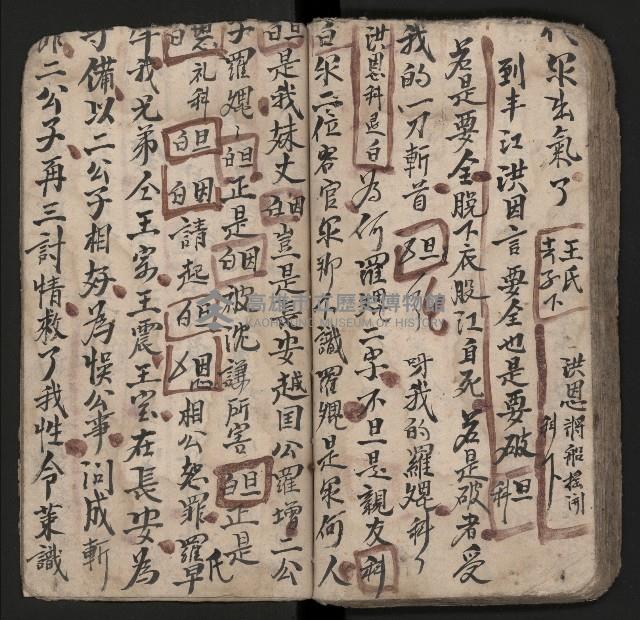 衆出氣了 王氏夫子下 洪恩將船撐開科介
到丰江洪因言要全也是要破 旦科
若是要全脫下衣股江自死若是破者受
我的一刀斬首 旦 呀我的羅焜科
洪恩科退白 為何羅焜二字不旦是親友 科
白 衆二位客官衆卿識羅焜是衆何人
白旦 是我妹丈 白因 豈是長安越国公羅增二公
子羅焜 白旦 正是 白因 被沈謙所害 白旦 正是
恩礼科 白旦 白因 請起 白旦 恩 相公恕罪羅草氏
年我兄弟仝王家王震王宝在長安為
守備以二公子相好為悞公事问成斬
二公子再三討情救了我性令萊識
高雄市立歷史博物館
KAOHSIUNG MUSEUM OF HISTORY